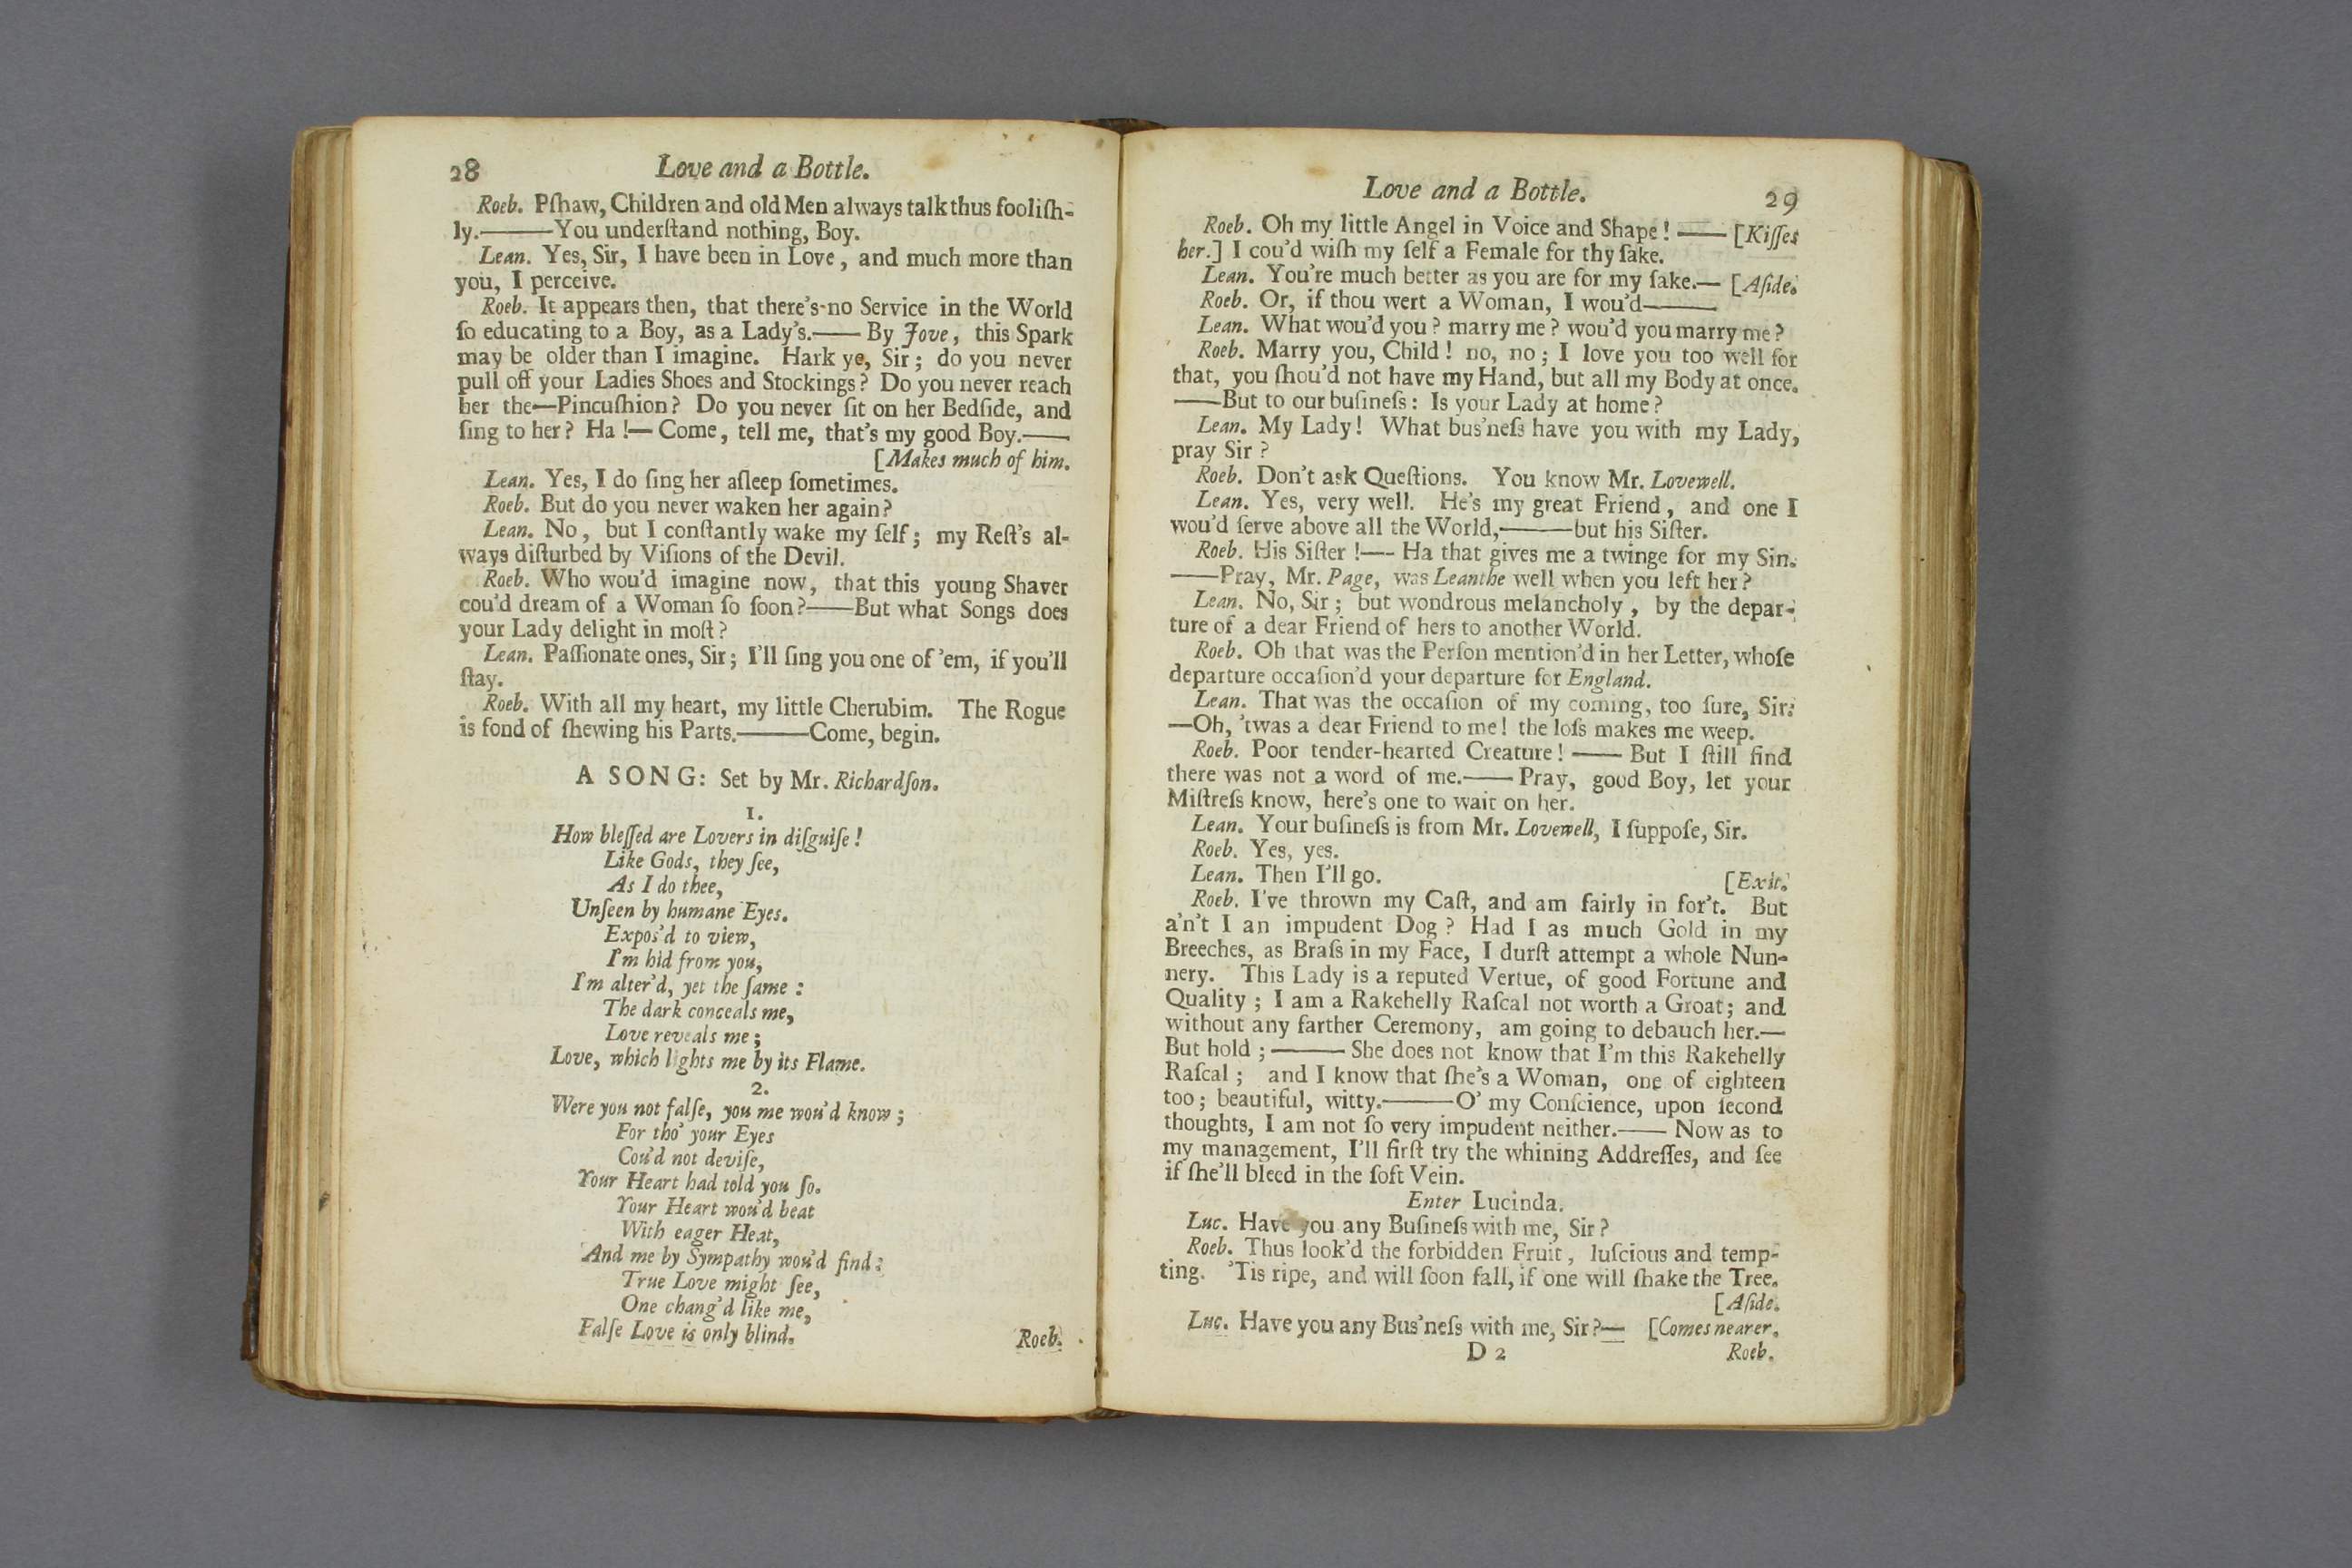 28
Love and a Bottle.
Roeb. Pſhaw, Children and old Men always talk thus fooliſh-
ly.———You underſtand nothing, Boy.
Lean. Yes, Sir, I have been in Love, and much more than
you, I perceive.
Roeb. It appears then, that there's no Service in the World
ſo educating to a Boy, as a Lady's.—— By Jove, this Spark
may be older than I imagine. Hark ye, Sir; do you never
pull off your Ladies Shoes and Stockings? Do you never reach
her the—Pincuſhion? Do you never ſit on her Bedſide, and
ſing to her? Ha!— Come, tell me, that's my good Boy.——
[Makes much of him.
Lean. Yes, I do ſing her aſleep ſometimes.
Roeb. But do you never waken her again?
Lean. No, but I conſtantly wake my ſelf; my Reſt's al-
ways diſturbed by Viſions of the Devil.
Roeb. Who wou'd imagine now, that this young Shaver
cou'd dream of a Woman ſo ſoon?——But what Songs does
your Lady delight in moſt?
Lean. Paſſionate ones, Sir; I'll ſing you one of 'em, if you'll
ſtay.
Roeb. With all my heart, my little Cherubim. The Rogue
is fond of ſhewing his Parts.———Come, begin.
A SONG: Set by Mr. Richardſon.
1.
How bleſſed are Lovers in diſguiſe!
Like Gods, they ſee,
As I do thee,
Unſeen by humane Eyes.
Expos'd to view,
I'm hid from you,
I'm alter'd, yet the ſame:
The dark conceals me,
Love reveals me;
Love, which lights me by its Flame.
2.
Were you not falſe, you me wou'd know;
For tho' your Eyes
Cou'd not deviſe,
Your Heart had told you ſo.
Your Heart wou'd beat
With eager Heat,
And me by Sympathy wou'd find:
True Love might ſee,
One chang'd like me,
Falſe Love is only blind.
Roeb.
Love and a Bottle.
29
Roeb. Oh my little Angel in Voice and Shape! —— [Kiſſes
her.] I cou'd wiſh my ſelf a Female for thy ſake.
Lean. You're much better as you are for my ſake.— [Aſide.
Roeb. Or, if thou wert a Woman, I wou'd———
Lean. What wou'd you? marry me? wou'd you marry me?
Roeb. Marry you, Child! no, no; I love you too well for
that, you ſhou'd not have my Hand, but all my Body at once.
——But to our buſineſs: Is your Lady at home?
Lean. My Lady! What bus'neſs have you with my Lady,
pray Sir?
Roeb. Don't ask Queſtions. You know Mr. Lovewell.
Lean. Yes, very well. He's my great Friend, and one I
wou'd ſerve above all the World,———but his Siſter.
Roeb. His Siſter!—— Ha that gives me a twinge for my Sin.
——Pray, Mr. Page, was Leanthe well when you left her?
Lean. No, Sir; but wondrous melancholy, by the depar-
ture of a dear Friend of hers to another World.
Roeb. Oh that was the Perſon mention'd in her Letter, whoſe
departure occaſion'd your departure for England.
Lean. That was the occaſion of my coming, too ſure, Sir.
—Oh, 'twas a dear Friend to me! the loſs makes me weep.
Roeb. Poor tender-hearted Creature! —— But I ſtill find
there was not a word of me.—— Pray, good Boy, let your
Miſtreſs know, here's one to wait on her.
Lean. Your buſineſs is from Mr. Lovewell, I ſuppoſe, Sir.
Roeb. Yes, yes.
Lean. Then I'll go. [Exit.
Roeb. I've thrown my Caſt, and am fairly in for't. But
a'n't I an impudent Dog? Had I as much Gold in my
Breeches, as Braſs in my Face, I durſt attempt a whole Nun-
nery. This Lady is a reputed Vertue, of good Fortune and
Quality; I am a Rakehelly Raſcal not worth a Groat; and
without any farther Ceremony, am going to debauch her.—
But hold;——— She does not know that I'm this Rakehelly
Raſcal; and I know that ſhe's a Woman, one of eighteen
too; beautiful, witty.———O' my Conſcience, upon ſecond
thoughts, I am not ſo very impudent neither.—— Now as to
my management, I'll firſt try the whining Addreſſes, and ſee
if ſhe'll bleed in the ſoft Vein.
Enter Lucinda.
Luc. Have you any Buſineſs with me, Sir?
Roeb. Thus look'd the forbidden Fruit, luſcious and temp-
ting. 'Tis ripe, and will ſoon fall, if one will ſhake the Tree.
[Aſide.
Luc. Have you any Bus'neſs with me, Sir?— [Comes nearer.
D 2
Roeb.